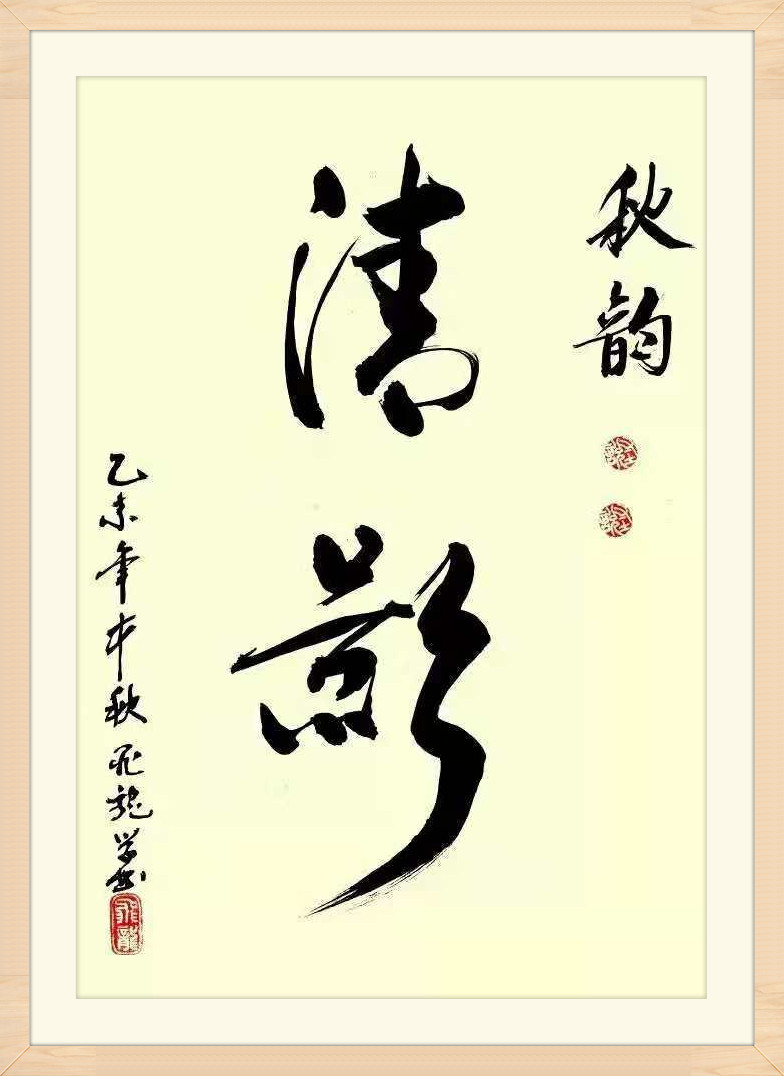 秋韵
清影
乙未年中秋飛龍学书
飛龍